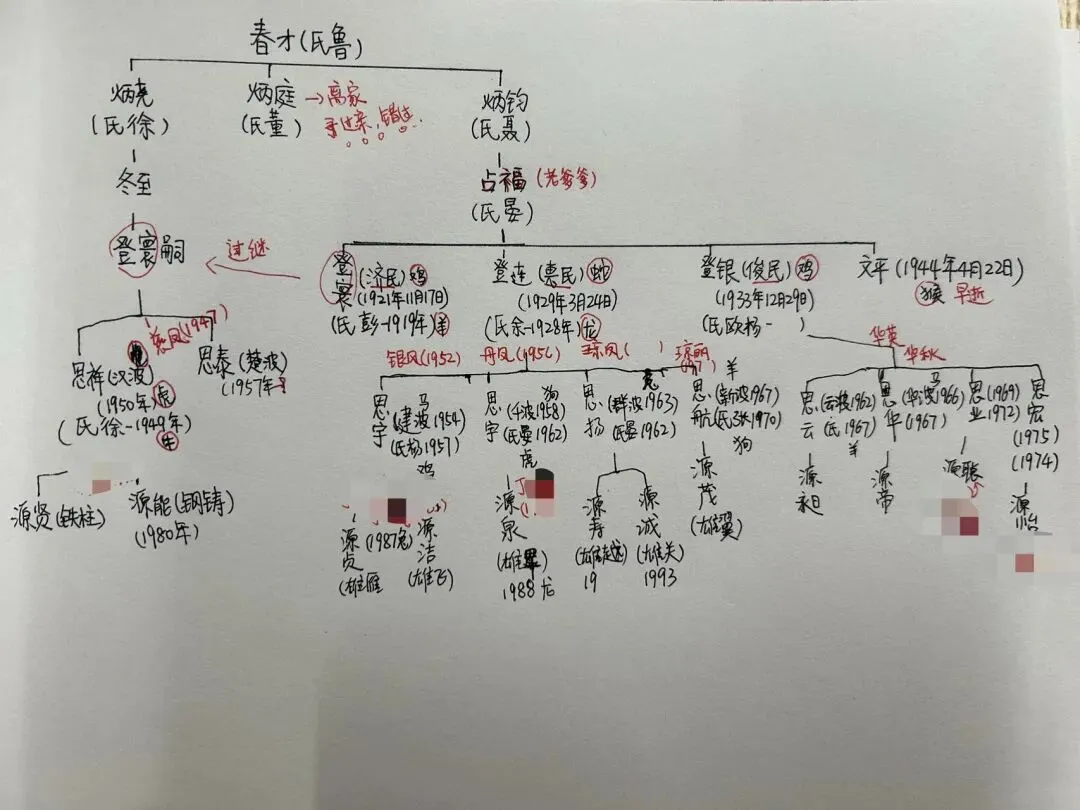 春才(氏鲁)
炳尧
(氏徐)
炳庭
(氏董)
→离家
炳钧
(氏聂)
冬至
占福(老爹爹)
(氏晏)
登寰嗣
过继
登寰(济民)鸡
(1921年11月17日)
(氏彭-1919年)羊
登连(惠民)蛇
(1929年3月24日)
(氏余-1928年)龙
登银(俊民)鸡
(1933年12月29日)
(氏欧杨- )
文平(1944年4月22日)
猴 早逝
凤(1947)
思祥(汉波)
(1950年)虎
(氏徐-1949年)
牛
思泰(楚波)
(1957年
银凤(1952)
丹凤(1956)
琼凤( )
琼丽
华英
华秋
思宇(建波1954)
马
(氏杨1957)
鸡
思宇(千波1958)
狗
(氏晏1962)
虎
思扬(群波1963)
兔
(氏晏1962)
思航(新波1967)
羊
(氏张1970)
狗
思云(云波1962)
(氏 1967)
羊
思华(华波1966)
马
(1967)
思业(1969)
1972)
思宏
(1975)
(1974)
源贤(铁柱)
源能(钢铸)
(1980年)
源贞
(1987兔)
(雄雁
源洁
(雄飞)
源泉
(雄
1988龙
源寿
(雄越)
19
源诚
(雄关)
1993
源茂
(雄翼)
源旭
源帝
源聪
源怡